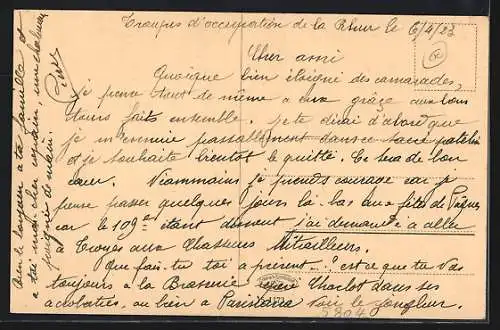 Troupes d'occupation de la Ruhr le 6/4/23
Cher ami
Quoique bien éloigné des camarades,
je pense tout de même a eux grâce aux bons
tours faits ensemble. je te dirai d'abord que
je m'ennuie passablement dans ce sacré patelin
et je souhaite bientot le quitté. Ce sera de bon
cœur. Néammains je prends courage car je
pense passer quelques jours là-bas aux fêtes de Pâques
car le 109e étant dissout j'ai demandé a aller
à aux Chasseurs Mitrailleurs.
Que fais-tu toi a présent...? est ce que tu vas
toujours a la Brasserie Charlot dans ses
acrobaties, ou bien a Parisiana voir le jongleur.
5804
Bien le bonjour a ta famille et
a toi mon cher copain, une chaleureuse
poignée de main.